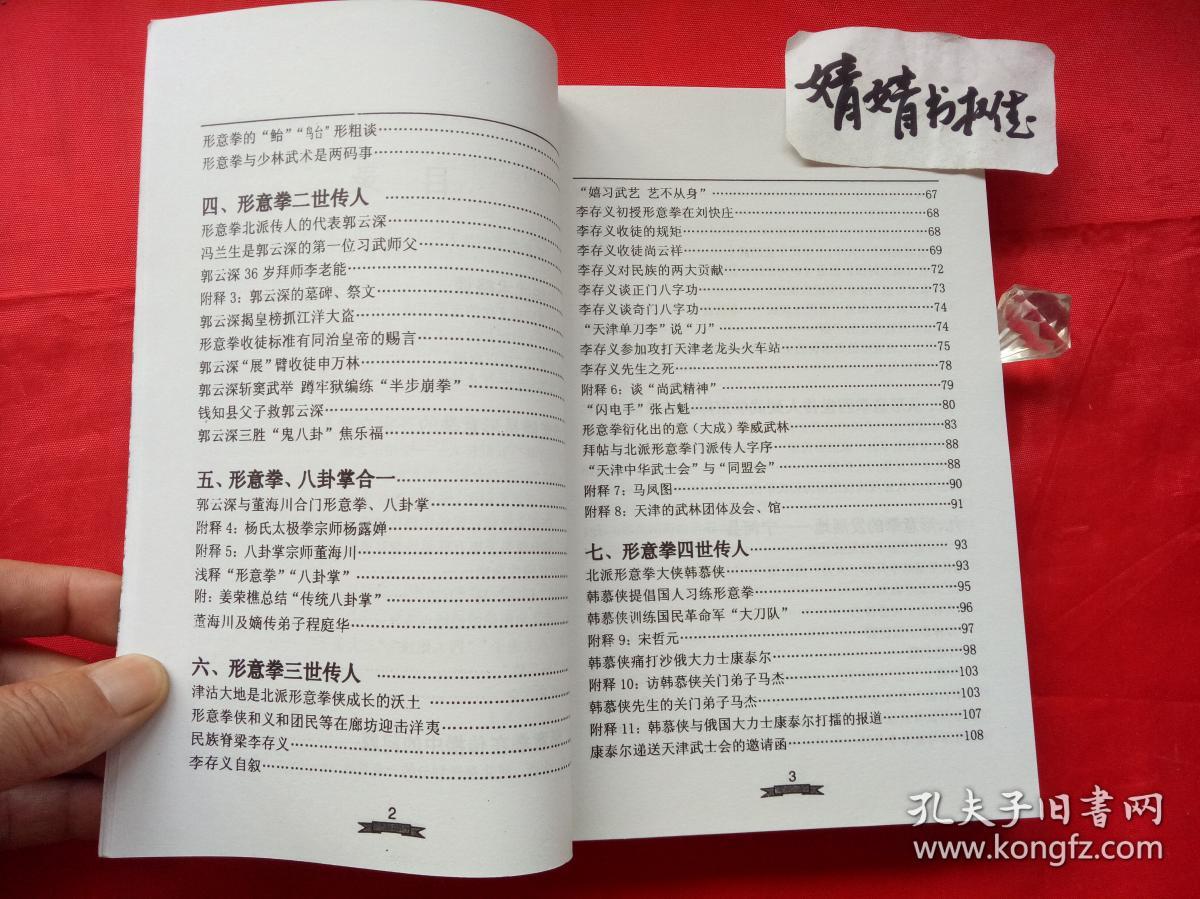 形意拳的“鲐”“鸟台”形粗谈
形意拳与少林武术是两码事
四、形意拳二世传人
形意拳北派传人的代表郭云深
冯兰生是郭云深的第一位习武师父
郭云深 36 岁拜师李老能
附释 3：郭云深的墓碑、祭文
郭云深揭皇榜抓江洋大盗
形意拳收徒标准有同治皇帝的赐言
郭云深“展”臂收徒申万林
郭云深斩窦武举 蹲牢狱编练“半步崩拳”
钱知县父子救郭云深
郭云深三胜“鬼八卦”焦乐福
五、形意拳、八卦掌合一
郭云深与董海川合门形意拳、八卦掌
附释 4：杨氏太极拳宗师杨露婵
附释 5：八卦掌宗师董海川
浅释“形意拳”“八卦掌”
附：姜荣樵总结“传统八卦掌”
董海川及嫡传弟子程庭华
六、形意拳三世传人
津沽大地是北派形意拳侠成长的沃土
形意拳侠和义和团民等在廊坊迎击洋夷
民族脊梁李存义
李存义自叙
2
“嬉习武艺 艺不从身” 67
李存义初授形意拳在刘快庄 68
李存义收徒的规矩 68
李存义收徒尚云祥 69
李存义对民族的两大贡献 72
李存义谈正门八字功 73
李存义谈奇门八字功 74
“天津单刀李”说“刀” 74
李存义参加攻打天津老龙头火车站 75
李存义先生之死 78
附释 6：谈“尚武精神” 79
“闪电手”张占魁 80
形意拳衍化出的意（大成）拳威武林 83
拜帖与北派形意拳门派传人字序 88
“天津中华武士会”与“同盟会” 88
附释 7：马凤图 90
附释 8：天津的武林团体及会、馆 91
七、形意拳四世传人 93
北派形意拳大侠韩慕侠 93
韩慕侠提倡国人习练形意拳 95
韩慕侠训练国民革命军“大刀队” 96
附释 9：宋哲元 97
韩慕侠痛打沙俄大力士康泰尔 98
附释 10：访韩慕侠关门弟子马杰 103
韩慕侠先生的关门弟子马杰 103
附释 11：韩慕侠与俄国大力士康泰尔打擂的报道 107
康泰尔递送天津武士会的邀请函 108
3
婧婧书
孔夫子旧書网
www.kongfz.com